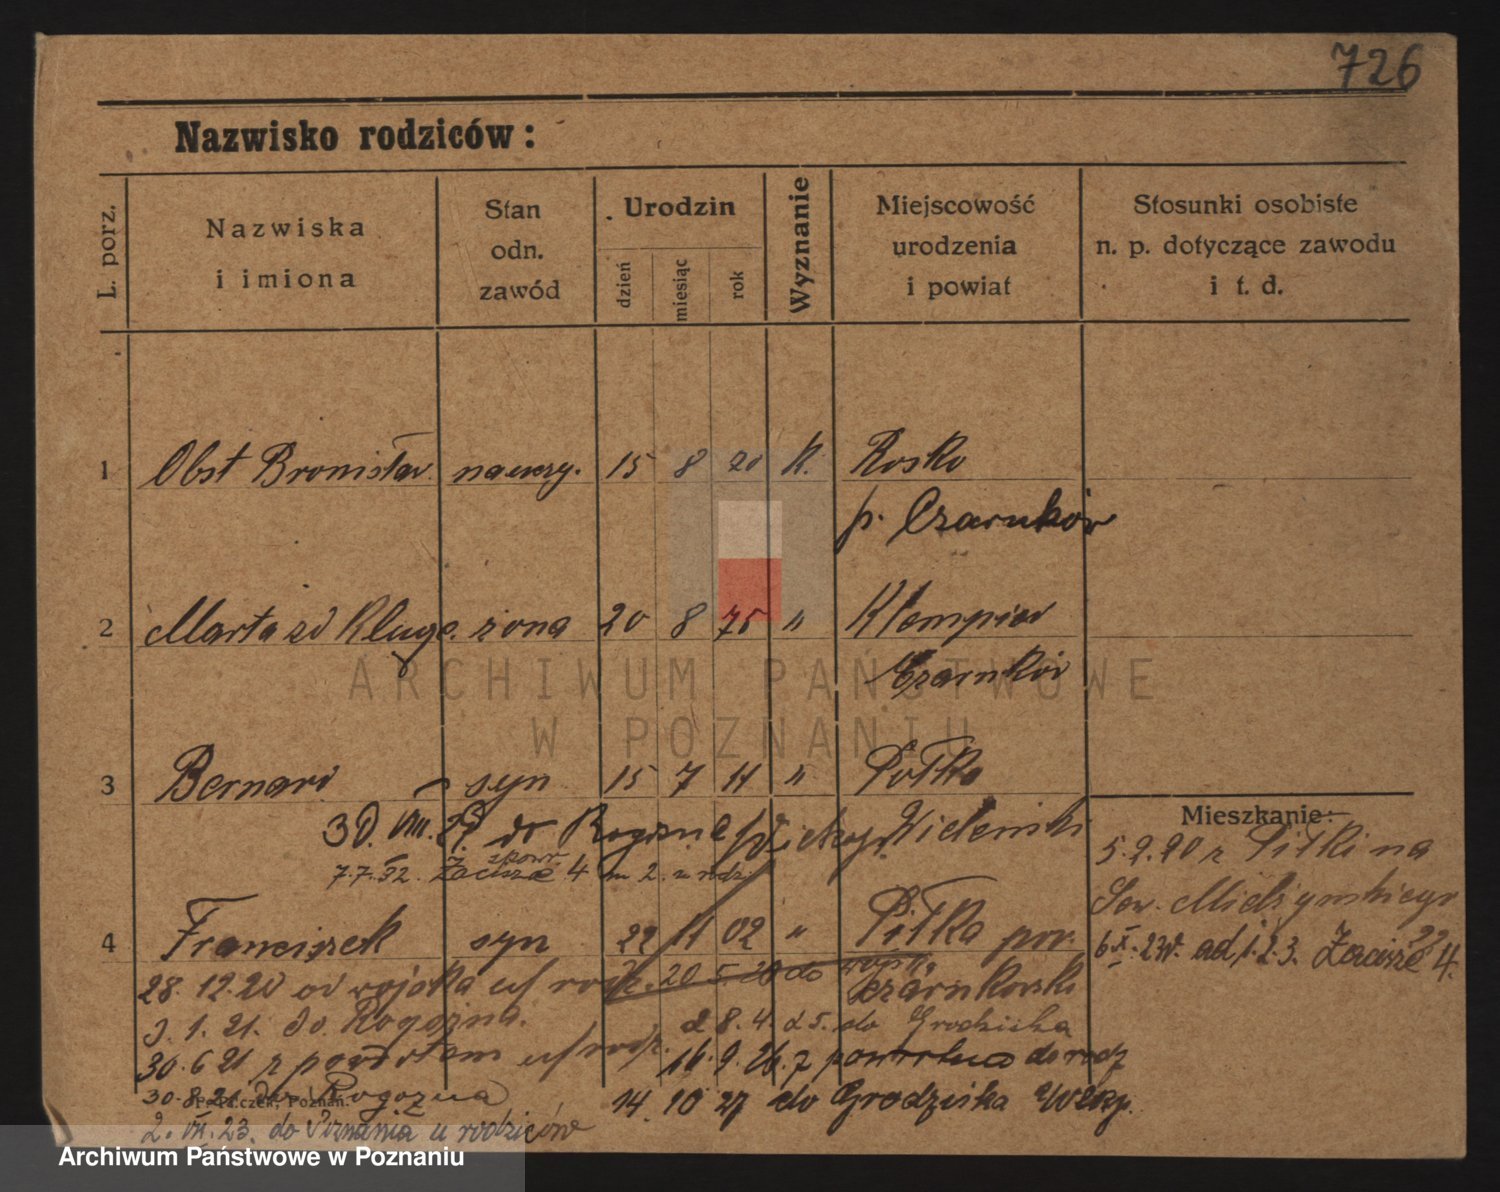 726
Nazwisko rodziców:
L. porz.
Nazwiska
i imiona
Stan
odn.
zawód
Urodzin
dzień
miesiąc
rok
Wyznanie
Miejscowość
urodzenia
i powiat
Stosunki osobiste
n. p. dotyczące zawodu
i t. d.
1 Obst Bronisław nauczy. 15 8 20 k. Rosko
p. Czarnków
2 Marta zd Kluge żona 20 8 75 " Klempicz
Czarnków
3 Bernard syn 15 7 11 " Piłka
30. VIII. 27. do Rogoźna
7.7.32. Zacisze 4 m 2. u rodz.
4 Franciszek syn 22 11 02 " Piłka pow.
czarnkowski
28. 12. 20 od wojska u/ rodz. 20 5. 20 do wojska
3. 1. 21. do Rogoźna. 28. 4. 25. do Grodziska
30. 6 21 z powrotem u/ rodz. 16. 9. 26. z powrotem do rodz
30. 8. 21. do Rogoźna 14. 10 27 do Grodziska Wlkp.
2. VII. 23. do Poznania u rodziców
Mieszkanie:
5. 2. 20 z Piłki na
Sew. Mielżyńskiego 22
6. X. 23r. ad 1. 2. 3. Zacisze 4.
Poznań.
ARCHIWUM PAŃSTWOWE
W POZNANIU
Archiwum Państwowe w Poznaniu